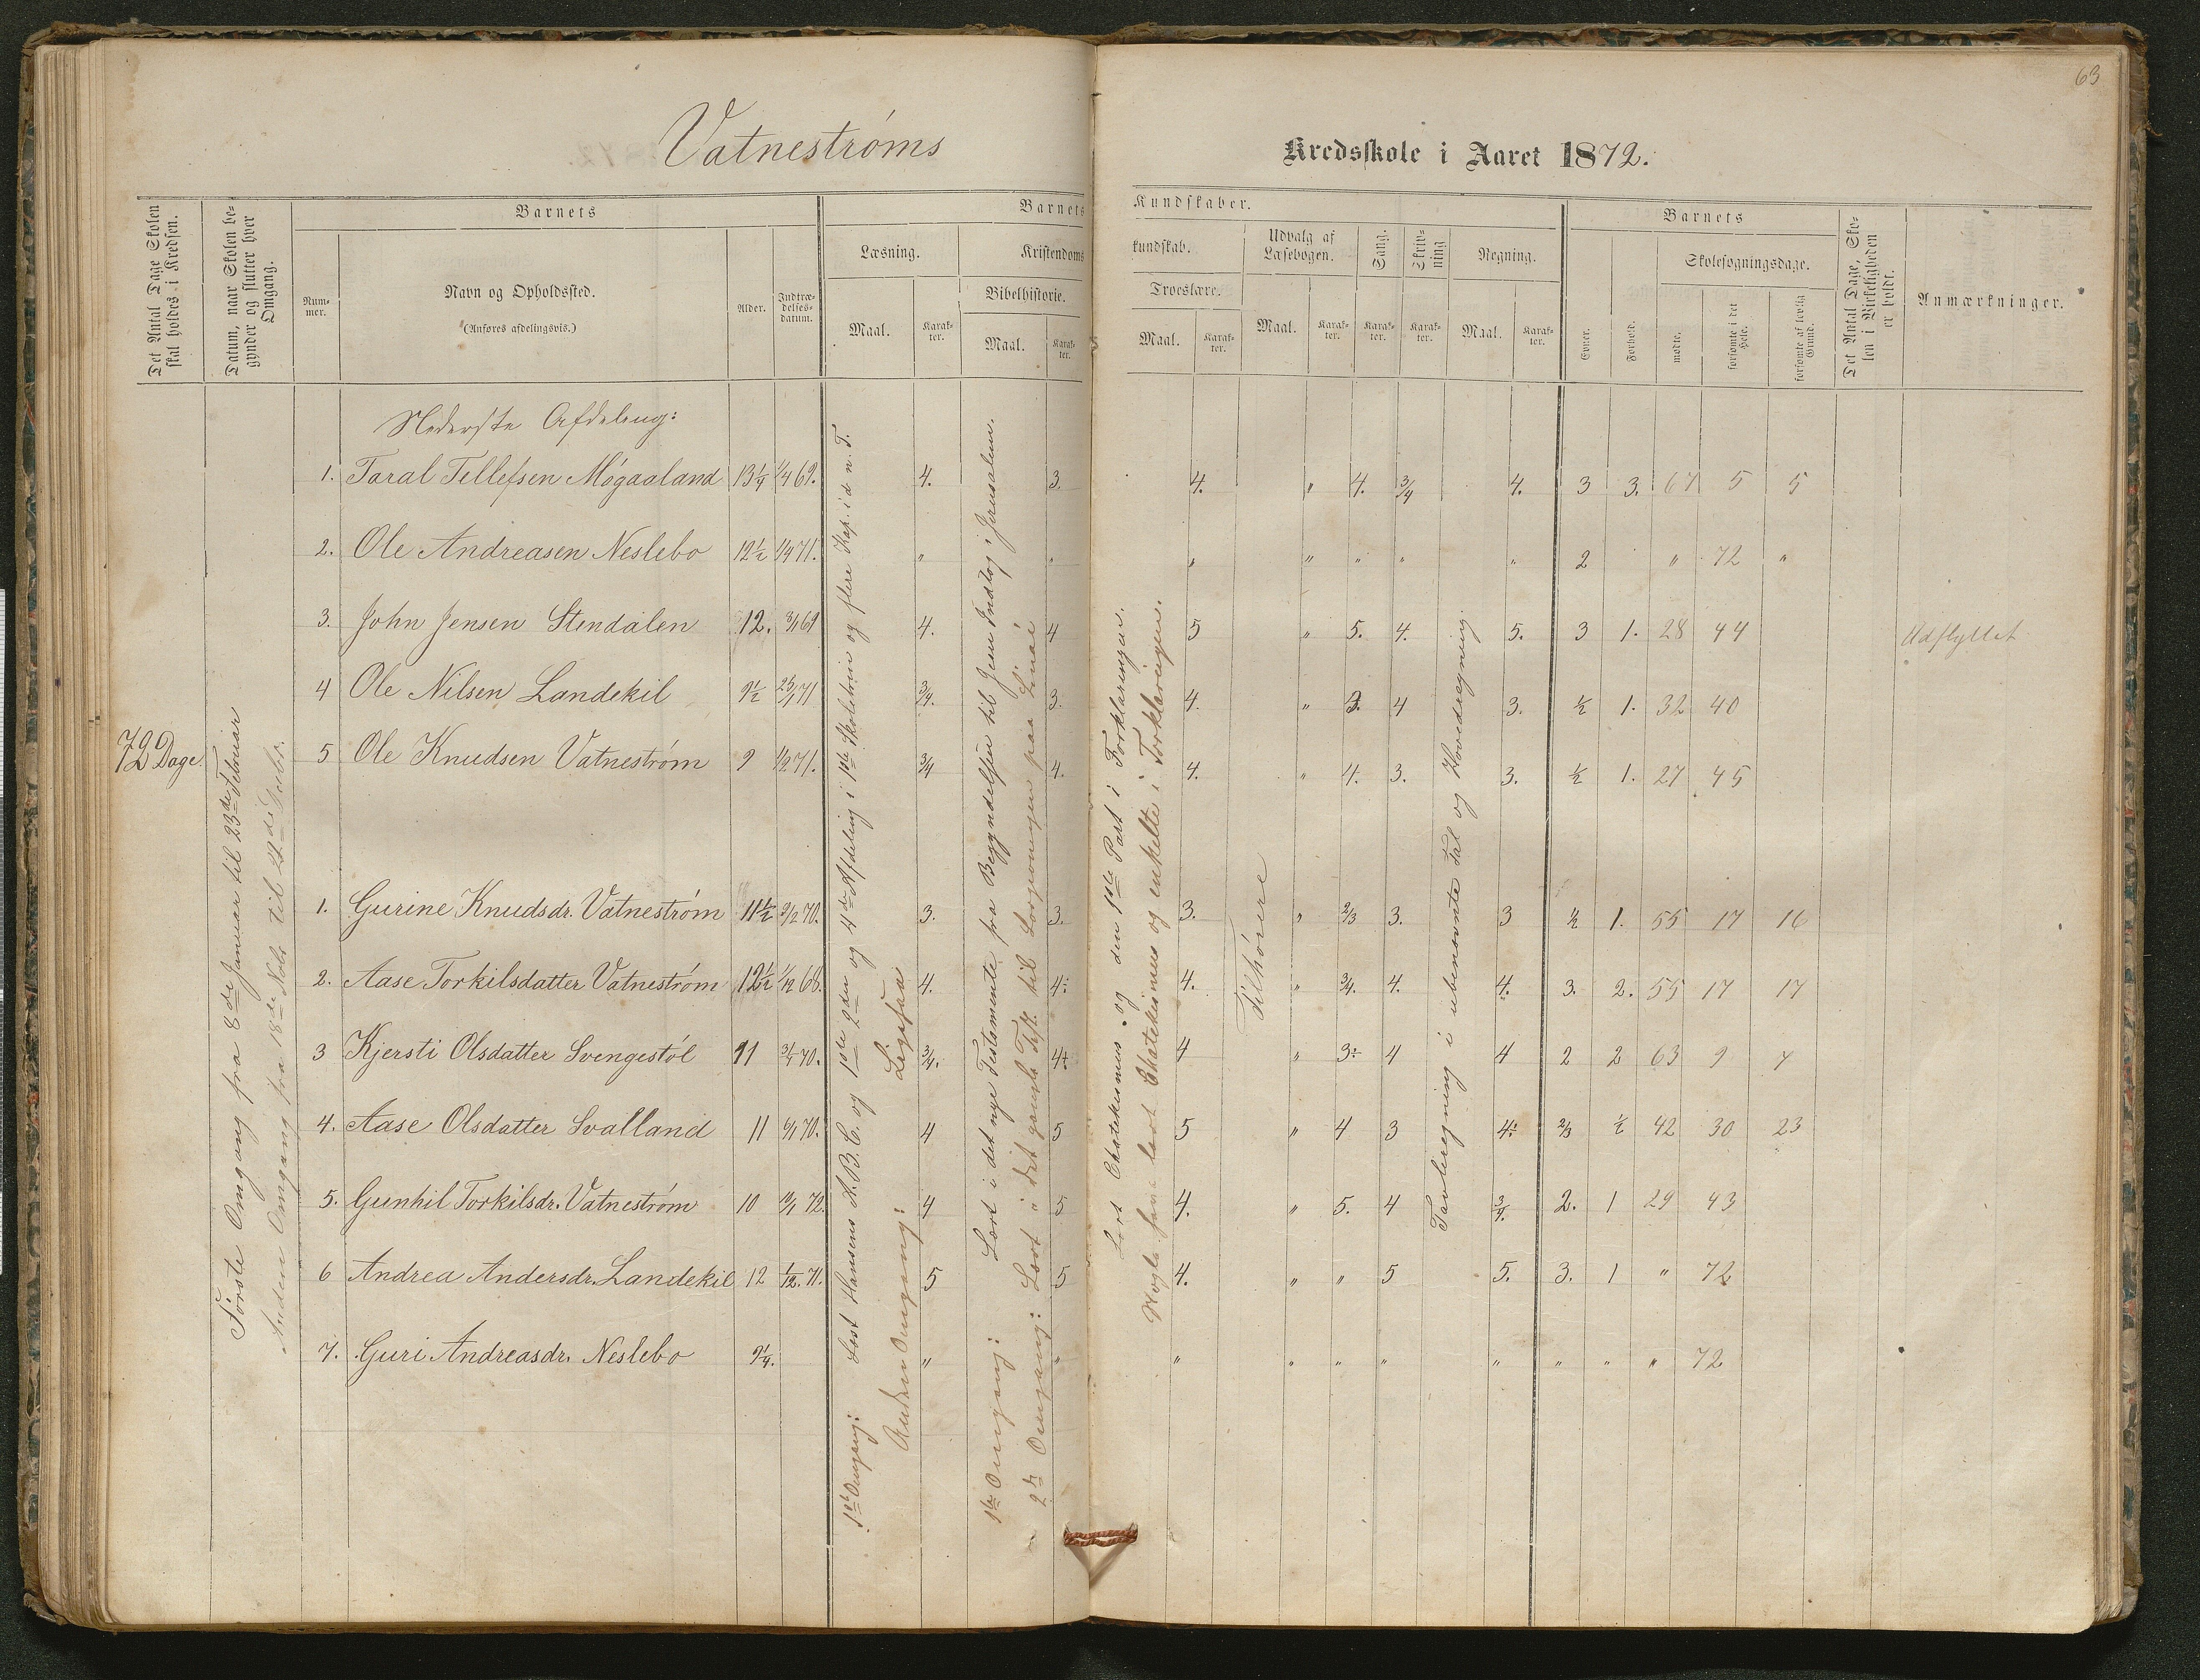 63
Vatneströms Kredsskole i Aaret 1872.
Det Antal Dage Skolen skal holdes i Kredsen.
Datum, naar Skolen begynder og slutter hver Omgang.
Barnets
Nummer.
Navn og Opholdssted.
(Anføres afdelingsvis.)
Alder.
Indtrædelsesdatum.
Barnets Kundskaber.
Læsning.
Maal.
Karakter.
Kristendomskundskab.
Bibelhistorie.
Maal.
Karakter.
Troeslære.
Maal.
Karakter.
Udvalg af Læsebogen.
Maal.
Karakter.
Sang.
Karakter.
Skrivning
Karakter.
Regning.
Maal.
Karakter.
Barnets
Evner.
Forhold.
Skolesøgningsdage.
mødte.
forsømte i det Hele.
forsømte af lovlig Grund.
Det Antal Dage, Skolen i Virkeligheden er holdt.
Anmærkninger.
72 Dage.
Første Omgang fra 8de Januar til 23de Februar
Anden Omgang fra 18de Nobr til 21de Decbr.
Nederste Afdeling:
1. Taral Tellefsen Mögaaland 13¼ 1/4 69. 4. 3. 4. " 4. 3/4 4. 3 3. 67 5 5
2. Ole Andreasen Neslebo 12½ 1/4 71. " " " " " " " 2 " 72 "
3. John Jensen Stendalen 12. 3/1 69 4. 4 5 " 5. 4. 5. 3 1. 28 44 Udflyttet
4 Ole Nilsen Landekil 9½ 25/1 71 3/4. 3. 4. " 3. 4 3. ½ 1. 32 40
5 Ole Knudsen Vatneström 9 1/2 71. 3/4 4. 4. " 4. 3. 3. ½ 1. 27 45
1. Gurine Knudsdr. Vatneström 11½ 2/12 70. 3. 3. 3. " 2/3 3. 3 ½ 1. 55 17 16
2. Aase Torkilsdatter Vatneström 12½ 1/12 68. 4. 4÷ 4. " 3/4. 4. 4. 3. 2. 55 17 17
3 Kjersti Olsdatter Svengestöl 11 3/1 70. 3/4. 4+ 4 " 3÷ 4 4 2 2 63 9 7
4. Aase Olsdatter Svalland 11 6/1 70. 4 5 5 " 4 3 4÷ 2/3 ½ 42 30 23
5. Gunhil Torkilsdr. Vatneström 10 9/1 72. 4 5 4. " 5. 4 3/4. 2. 1 29 43
6 Andrea Andersdr. Landekil 12 1/12. 71. 5 5 4. " " 5 5. 3. 1 " 72
7. Guri Andreasdr. Neslebo 9¼. " " " " " " " " " " 72
1ste Omgang: Læst Hansens A.B.C. og 1ste 2den og 4de Afdeling i 1ste Skoletrin og flere Kap. i d. n. T.
Anden Omgang: Ligesaa
1ste Omgang: Læst i det nye Testamente fra Begyndelsen til Jesu Indtog i Jerusalem.
2den Omgang: Læst i det gamle Test. til Lovgivningen paa Sinai
Læst Chatekismus og den 1ste Part i Forklaringen.
Nogle have læst Chatekismus og enkelte i Forklaringen.
Tilhörere
Tavleregning i ubenævnte Tal og Hovedregning